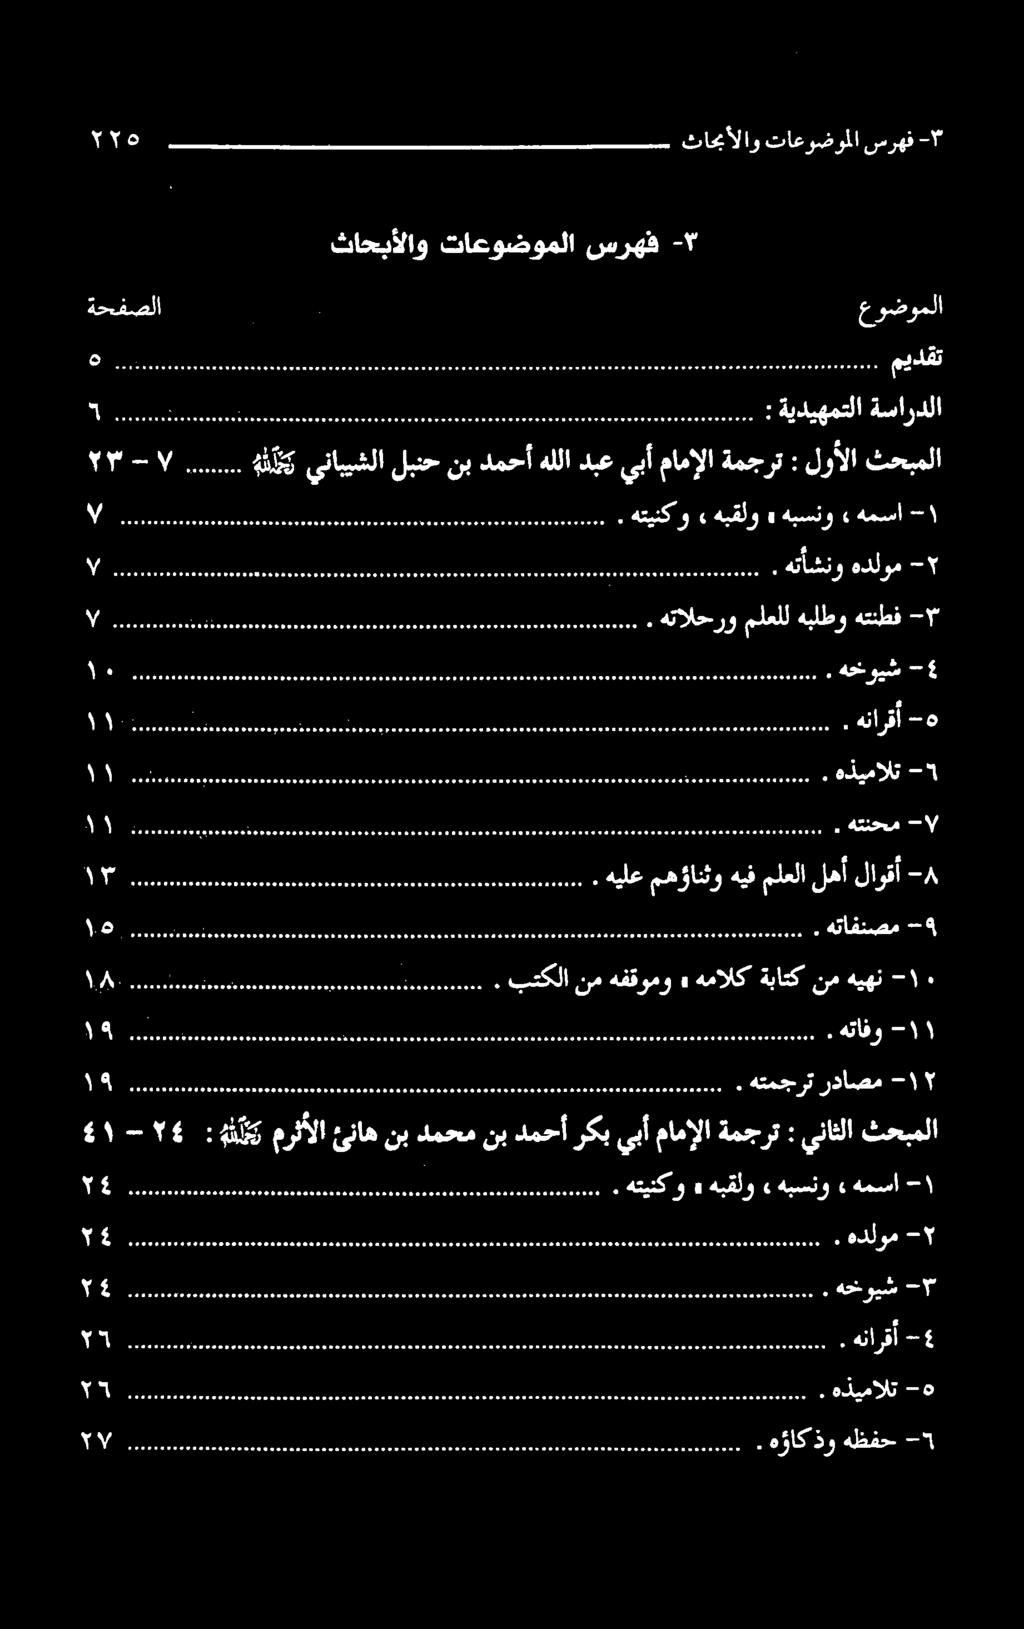 ٣- فهرس الموضوعات والأبحاث ٢٢٥
٣- فهرس الموضوعات والأبحاث
الموضوع الصفحة
تقديم ... ٥
الدراسة التمهيدية : ... ٦
المبحث الأول : ترجمة الإمام أبي عبد الله أحمد بن حنبل الشيباني رحمه الله ... ٧ - ٢٣
١- اسمه ، ونسبه ، ولقبه ، وكنيته . ... ٧
٢- مولده ونشأته . ... ٧
٣- فطنته وطلبه للعلم ورحلاته . ... ٧
٤- شيوخه . ... ١٠
٥- أقرانه . ... ١١
٦- تلاميذه . ... ١١
٧- محنته . ... ١١
٨- أقوال أهل العلم فيه وثناؤهم عليه . ... ١٣
٩- مصنفاته . ... ١٥
١٠- نهيه من كتابة كلامه ، وموقفه من الكتب . ... ١٨
١١- وفاته . ... ١٩
١٢- مصادر ترجمته . ... ١٩
المبحث الثاني : ترجمة الإمام أبي بكر أحمد بن محمد بن هانئ الأثرم رحمه الله : ٢٤ - ٤١
١- اسمه ، ونسبه ، ولقبه ، وكنيته . ... ٢٤
٢- مولده . ... ٢٤
٣- شيوخه . ... ٢٤
٤- أقرانه . ... ٢٦
٥- تلاميذه . ... ٢٦
٦- حفظه وذكاؤه . ... ٢٧